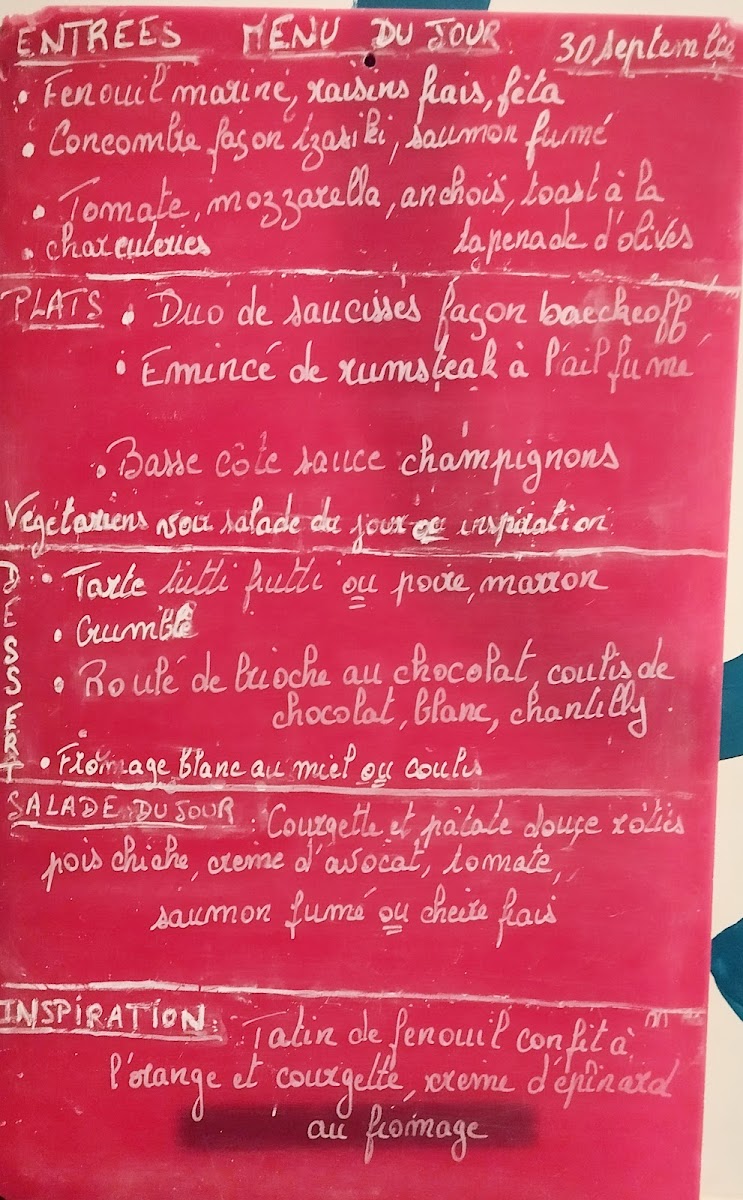 ENTRÉES MENU DU JOUR. 30 septembre
• Fenouil mariné, raisins frais, féta
• Concombre façon tzasiki, saumon fumé
• Tomate, mozzarella, anchois, toast à la
• charcuteries tapenade d'olives
PLATS • Duo de saucisses façon baeckeoff
• Emincé de rumsteak à l'ail fumé
• Basse côte sauce champignons
Végétariens voir salade du jour ou inspiration
DESSERT • Tarte tutti frutti ou poire, marron
• Crumble
• Roulé de brioche au chocolat, coulis de
chocolat, blanc, chantilly.
• Fromage blanc au miel ou coulis
SALADE DU JOUR : Courgette et pâtate douçe rôties
pois chiche, creme d'avocat, tomate,
saumon fumé ou chèvre frais
INSPIRATION: Tatin de fenouil confit à
l'orange et courgette, creme d'épinard
au fromage